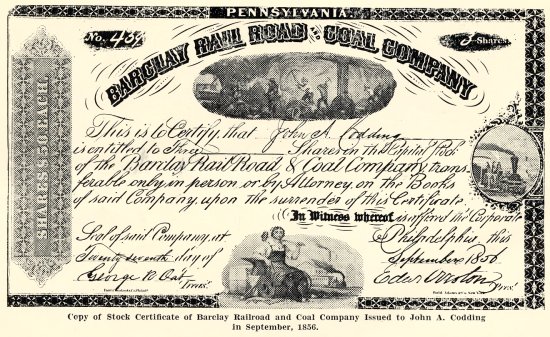 PENNSYLVANIA.
No. 45
Shares
BARCLAY RAIL ROAD AND COAL COMPANY
SHARES $50 EACH.
This is to Certify, that John A. Codding
is entitled to Three Shares in the Capital Stock
of the Barclay Rail Road & Coal Company, trans-
ferable only in person or by Attorney, on the Books
of said Company, upon the surrender of this Certificate.
In Witness whereof is affixed the Corporate
Seal of said Company, at Philadelphia, this
Twenty seventh day of September 1856.
George
Treas.
Edw
Pres.
Copy of Stock Certificate of Barclay Railroad and Coal Company Issued to John A. Codding
in September, 1856.